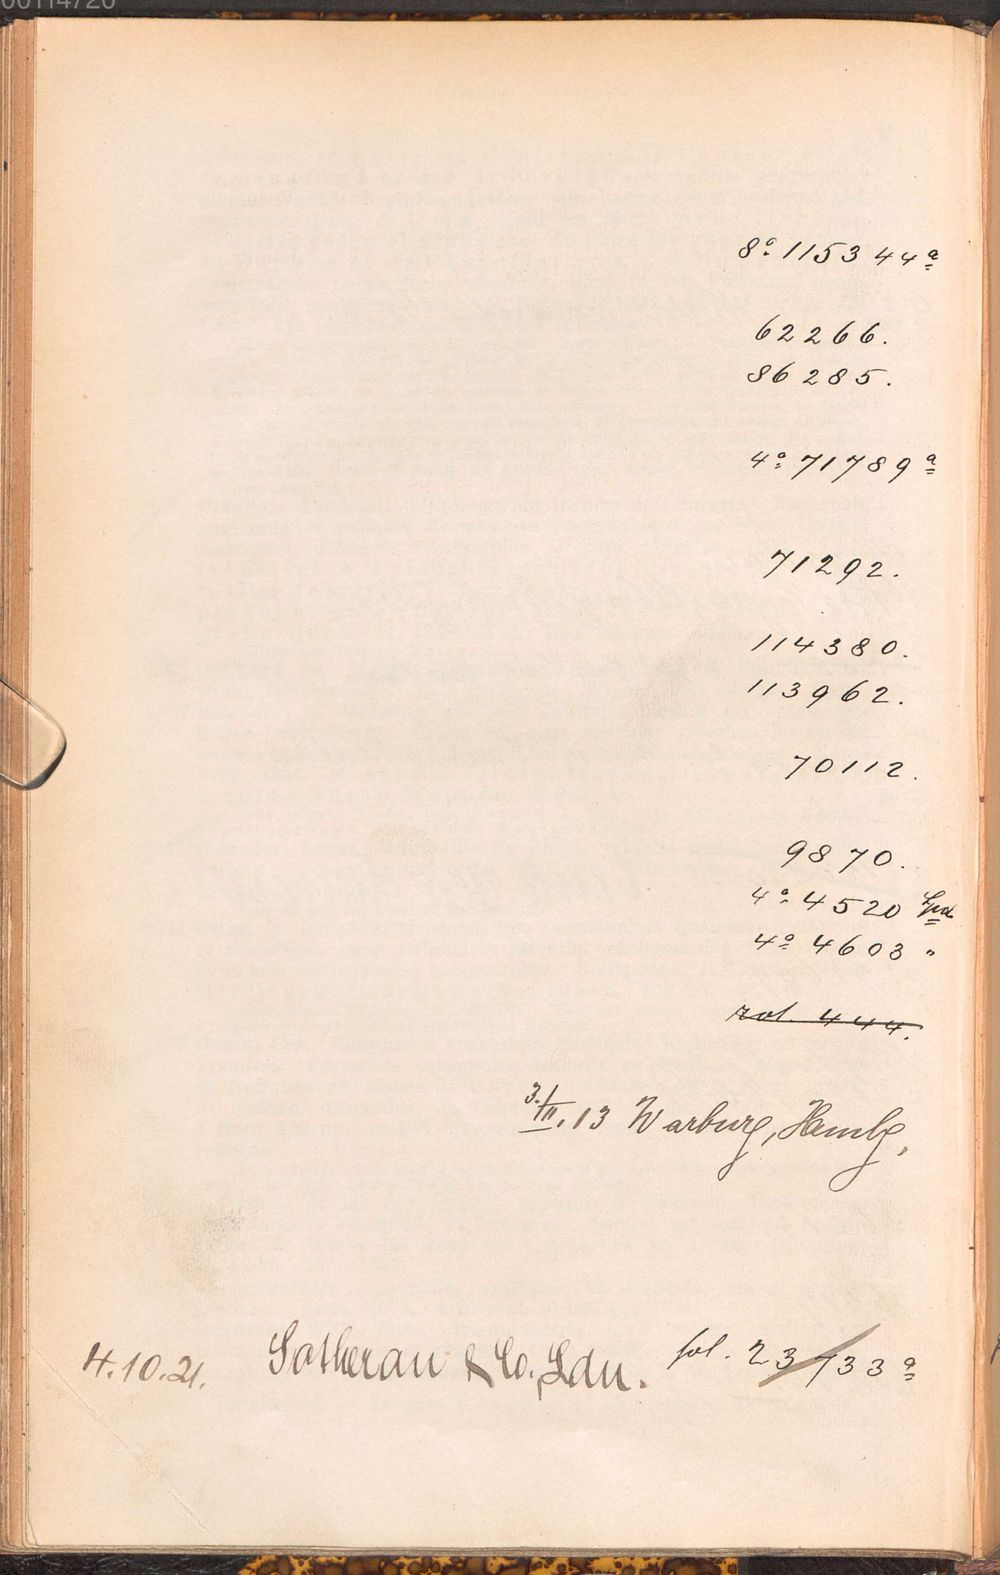 00114720
8º 115344ª
62266.
86285.
4º 71789ª
71292.
114380.
113962.
70112.
9870.
4º 4520
4º 4603 "
444.
3./II. 13 Warburg, Hambg,
4.10.21. Sotheran & Co. Ldn. fol. 23733ª